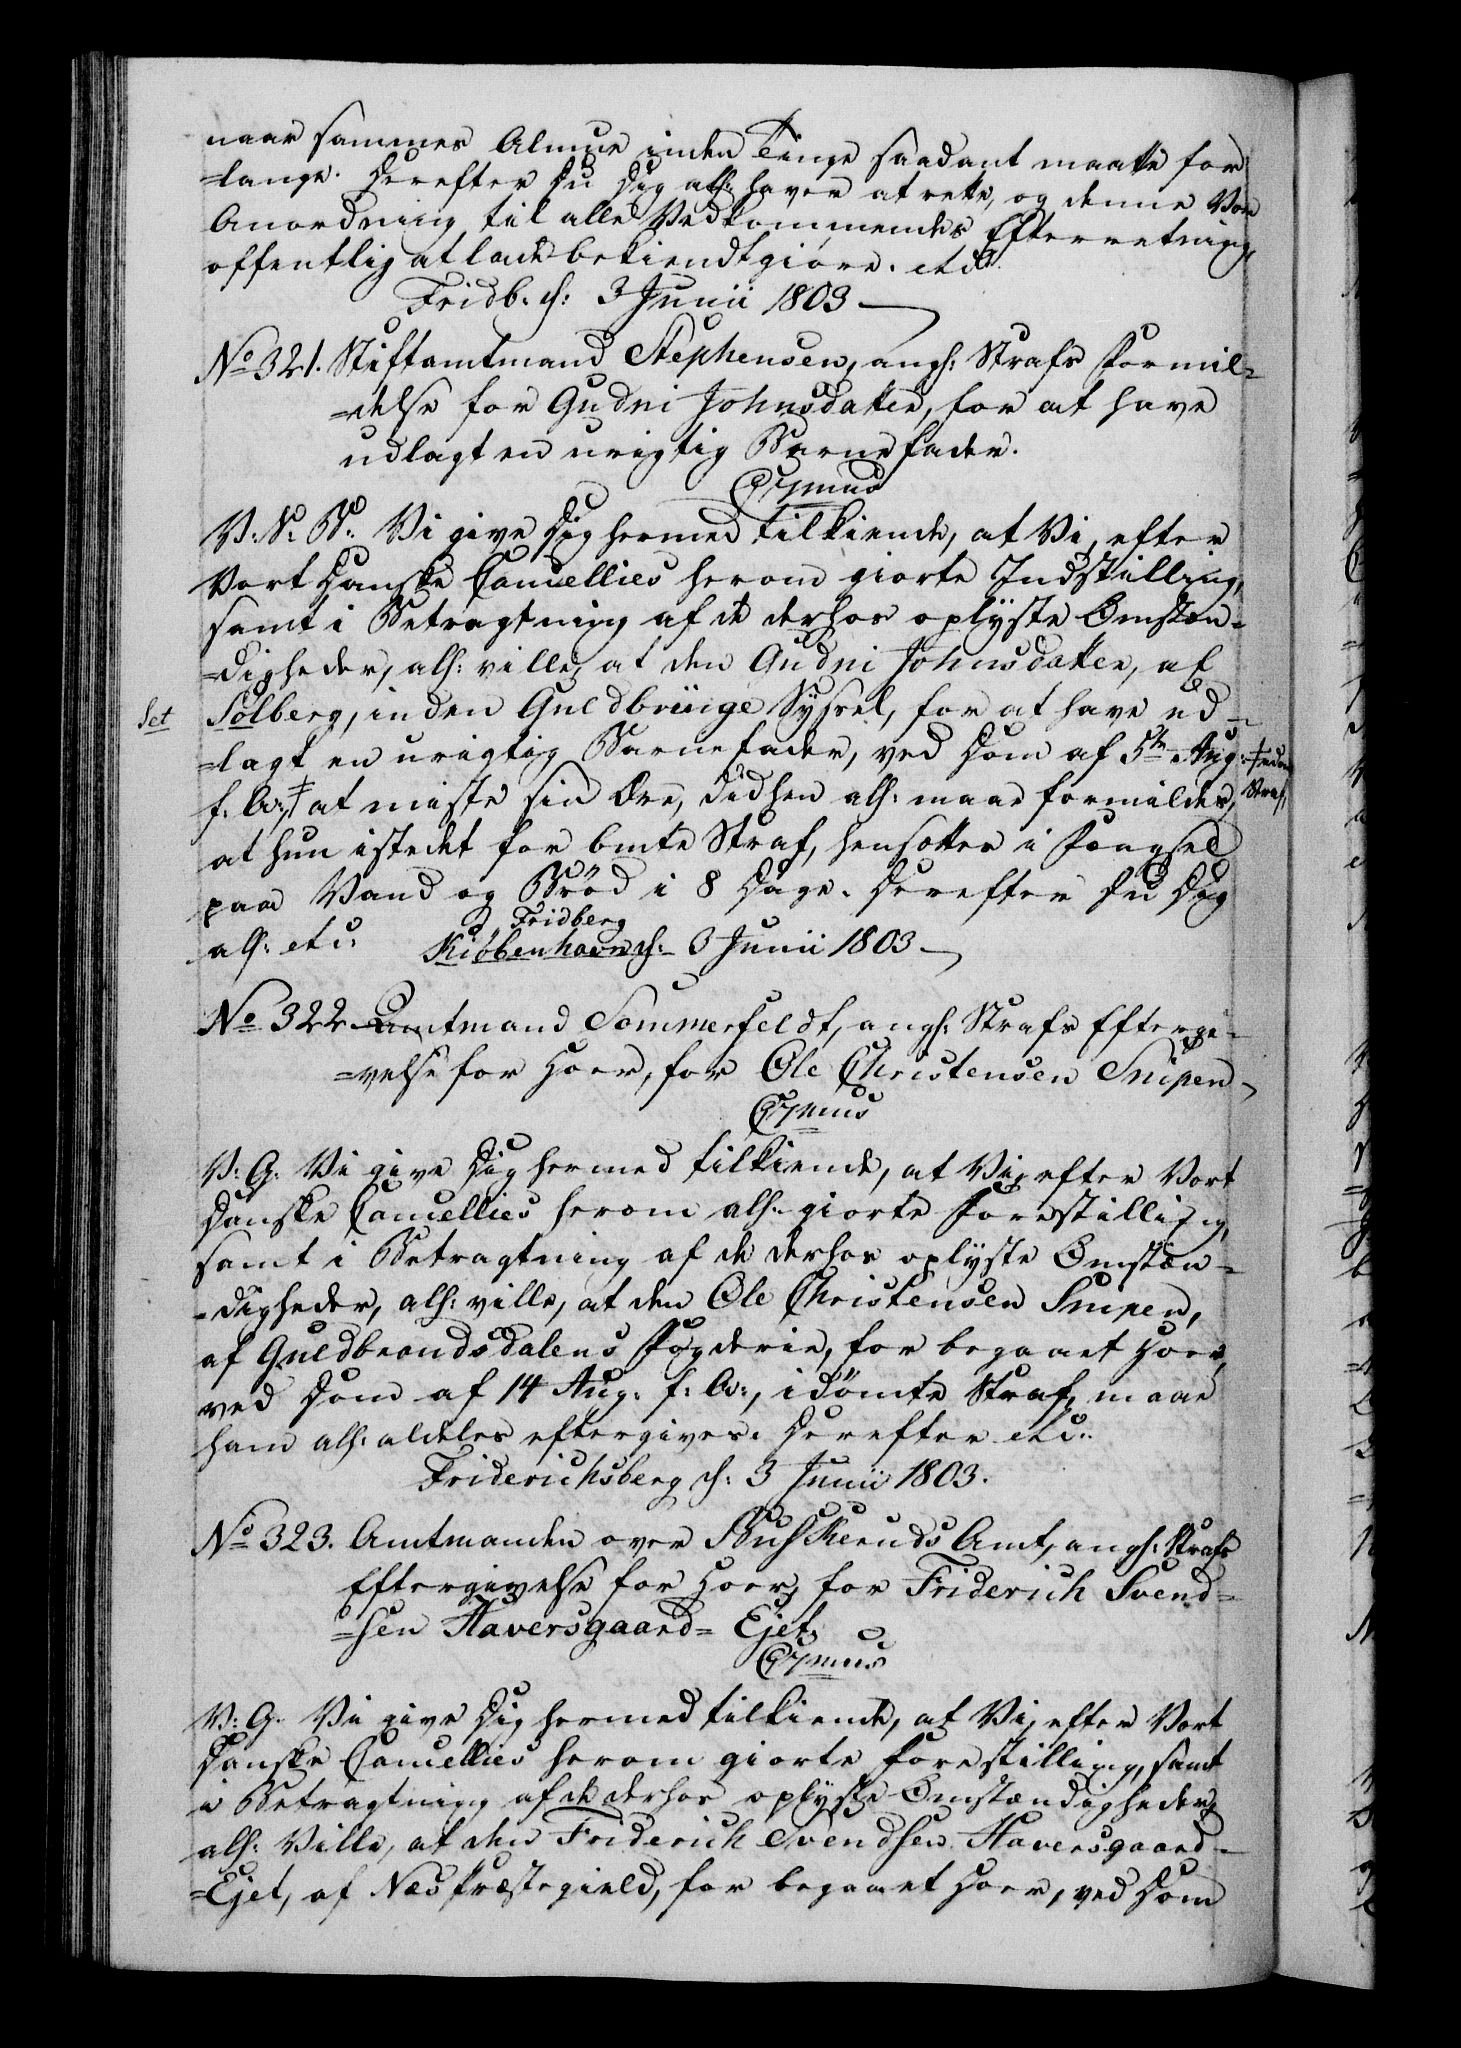 naar sammes Almue inden Tinge saadant maatte for-
=lange. Herefter Du Dig alh: haver at rette, og denne Vor
Anordning til alle Vedkommendes Efterretning
offentlig at lade bekiendtgiøre. etc:
Fridb. d: 3 Junii 1803
No 321. Stiftamtmand Stephensen, angl: Strafs Formil=
=delse for Gudni Johnsdatter, for at have
udlagt en urigtig Barnefader.
V: S: V: Vi give Dig hermed tilkiende, at Vi, efter
Vort Danske Cancellies herom giorte Indstilling,
samt i Betragtning af de derhos oplyste Omstæn=
=digheder, alh: ville, at den Gudni Johnsdatter, af
Set Sølberg, inden Guldbringe Syssel, for at have ud=
=lagt en urigtig Barnefader, ved Dom af 5te Aug: ‡ idømte
f: A: ‡ at miste sin Ære, Straf,
at hun istedet for bmte Straf, hensættes i Fængsel
paa Vand og Brød i 8 Dage. Derefter Du Dig
Fridberg
alh: etc: Kiøbenhavn d: 3 Junii 1803
No 322 Amtmand Sommerfeldt, angl: Strafs Eftergi=
=velse for Hoer, for Ole Christensen Snipen
V: G: Vi give Dig hermed tilkiende, at Vi, efter Vort
Danske Cancellies herom alh: giorte Forestilling,
samt i Betragtning af de derhos oplyste Omstæn=
=digheder, alh: ville, at den Ole Christensen Snipen,
af Guldbrandsdalens Fogderie, for begaaet Hoer,
ved Dom af 14 Aug: f: A:, idømte Straf, maae
ham alh: aldeles eftergives. Derefter etc:
Friderichsberg d: 3 Junii 1803.
No 323. Amtmanden over Buskeruds Amt, angl: Strafs
Eftergivelse for Hoer, for Friderich Svend=
=sen Haversgaard= Ejet.
V: G: Vi give Dig hermed tilkiende, at Vi, efter Vort
Danske Cancellies herom giorte Forestilling, samt
i Betragtning af de derhos oplyste Omstændigheder,
alh: Ville, at den Friderich Svendsen Haversgaard=
=Ejet, af Næs Præstegield, for begaaet Hoer, ved Dom